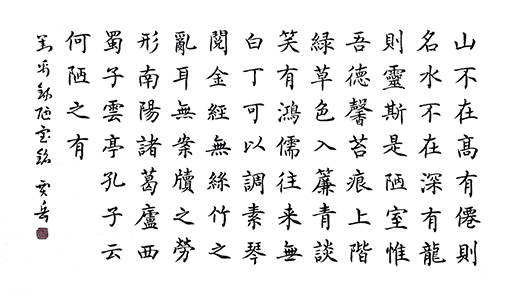 山不在高有僊則
名水不在深有龍
則靈斯是陋室惟
吾德馨苔痕上階
綠草色入簾青談
笑有鴻儒往来無
白丁可以調素琴
閱金經無絲竹之
亂耳無案牘之勞
形南陽諸葛廬西
蜀子雲亭孔子云
何陋之有
劉禹錫陋室銘